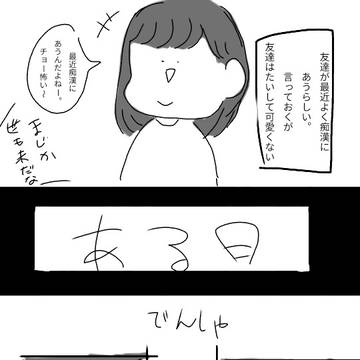 友達が最近よく痴漢に
あうらしい。
言っておくが
友達はたいして可愛くない
最近痴漢に
あうんだよねー。
チョー怖い〜
まじか
世も末だなー
ある日
でんしゃ